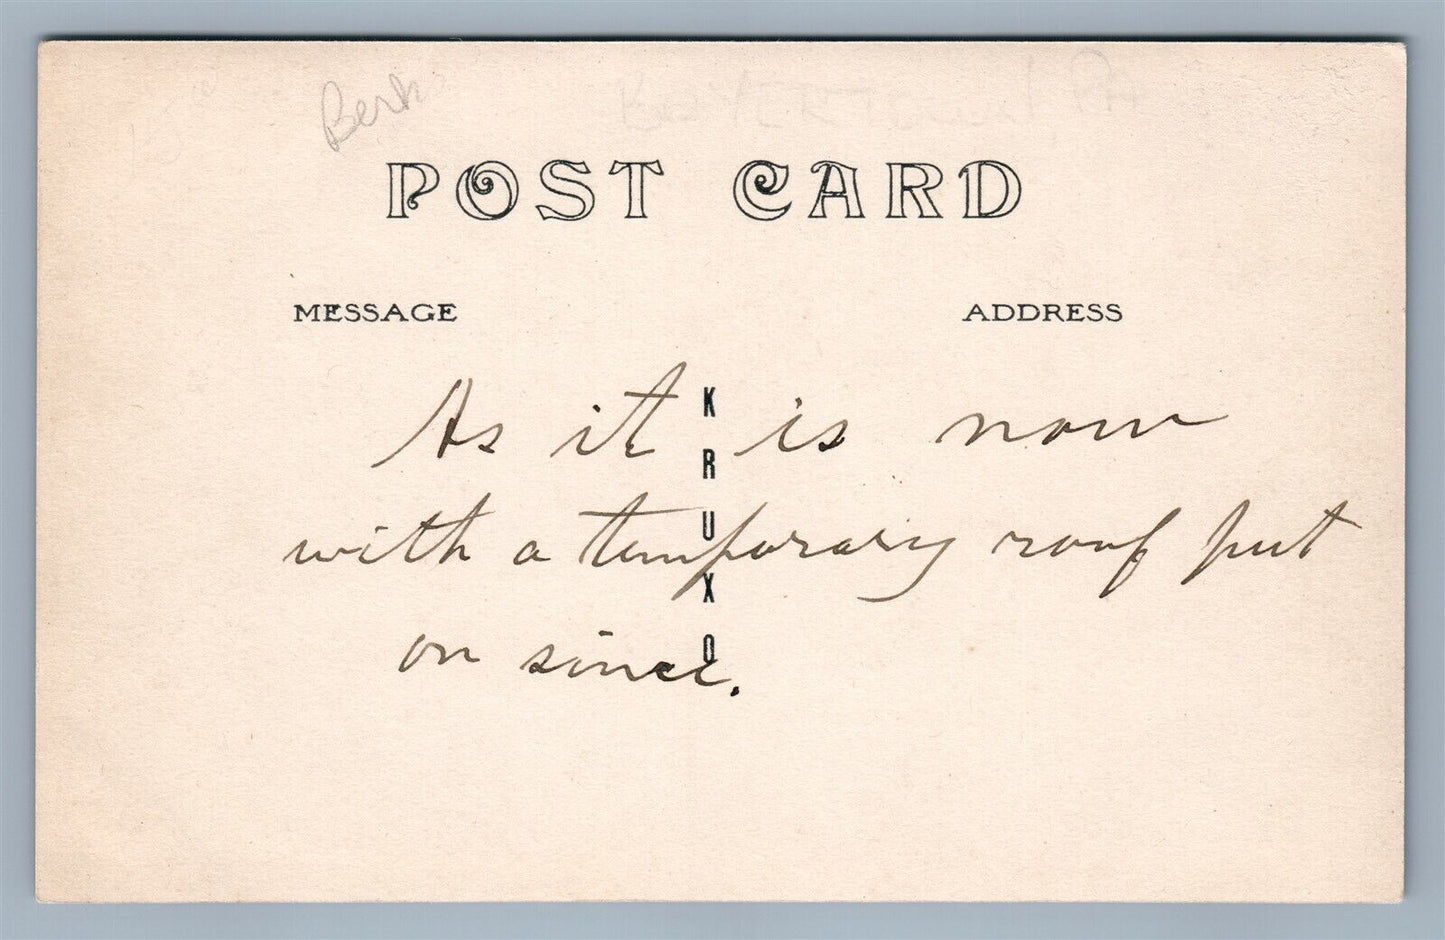 Berks
POST CARD
MESSAGE
ADDRESS
KRUXO
As it is now
with a temporary roof put
on since.